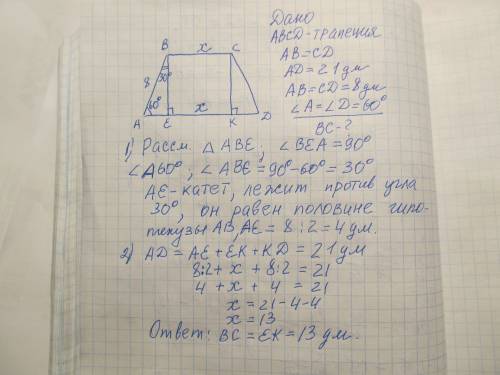 Дано
ABCD-трапеция
AB=CD
AD=21дм
AB=CD=8дм
∠A=∠D=60°
BC-?
B x C
8 30°
60° x
A E K D
1) Рассм. △ABE; ∠BEA=90°
∠A60°; ∠ABE=90°-60°=30°
AE-катет, лежит против угла
30°, он равен половине гипо-
тенузы AB, AE = 8:2=4дм.
2) AD=AE+EK+KD=21дм
8:2+x+8:2=21
4+x+4=21
x=21-4-4
x=13
Ответ: BC=EK=13 дм.